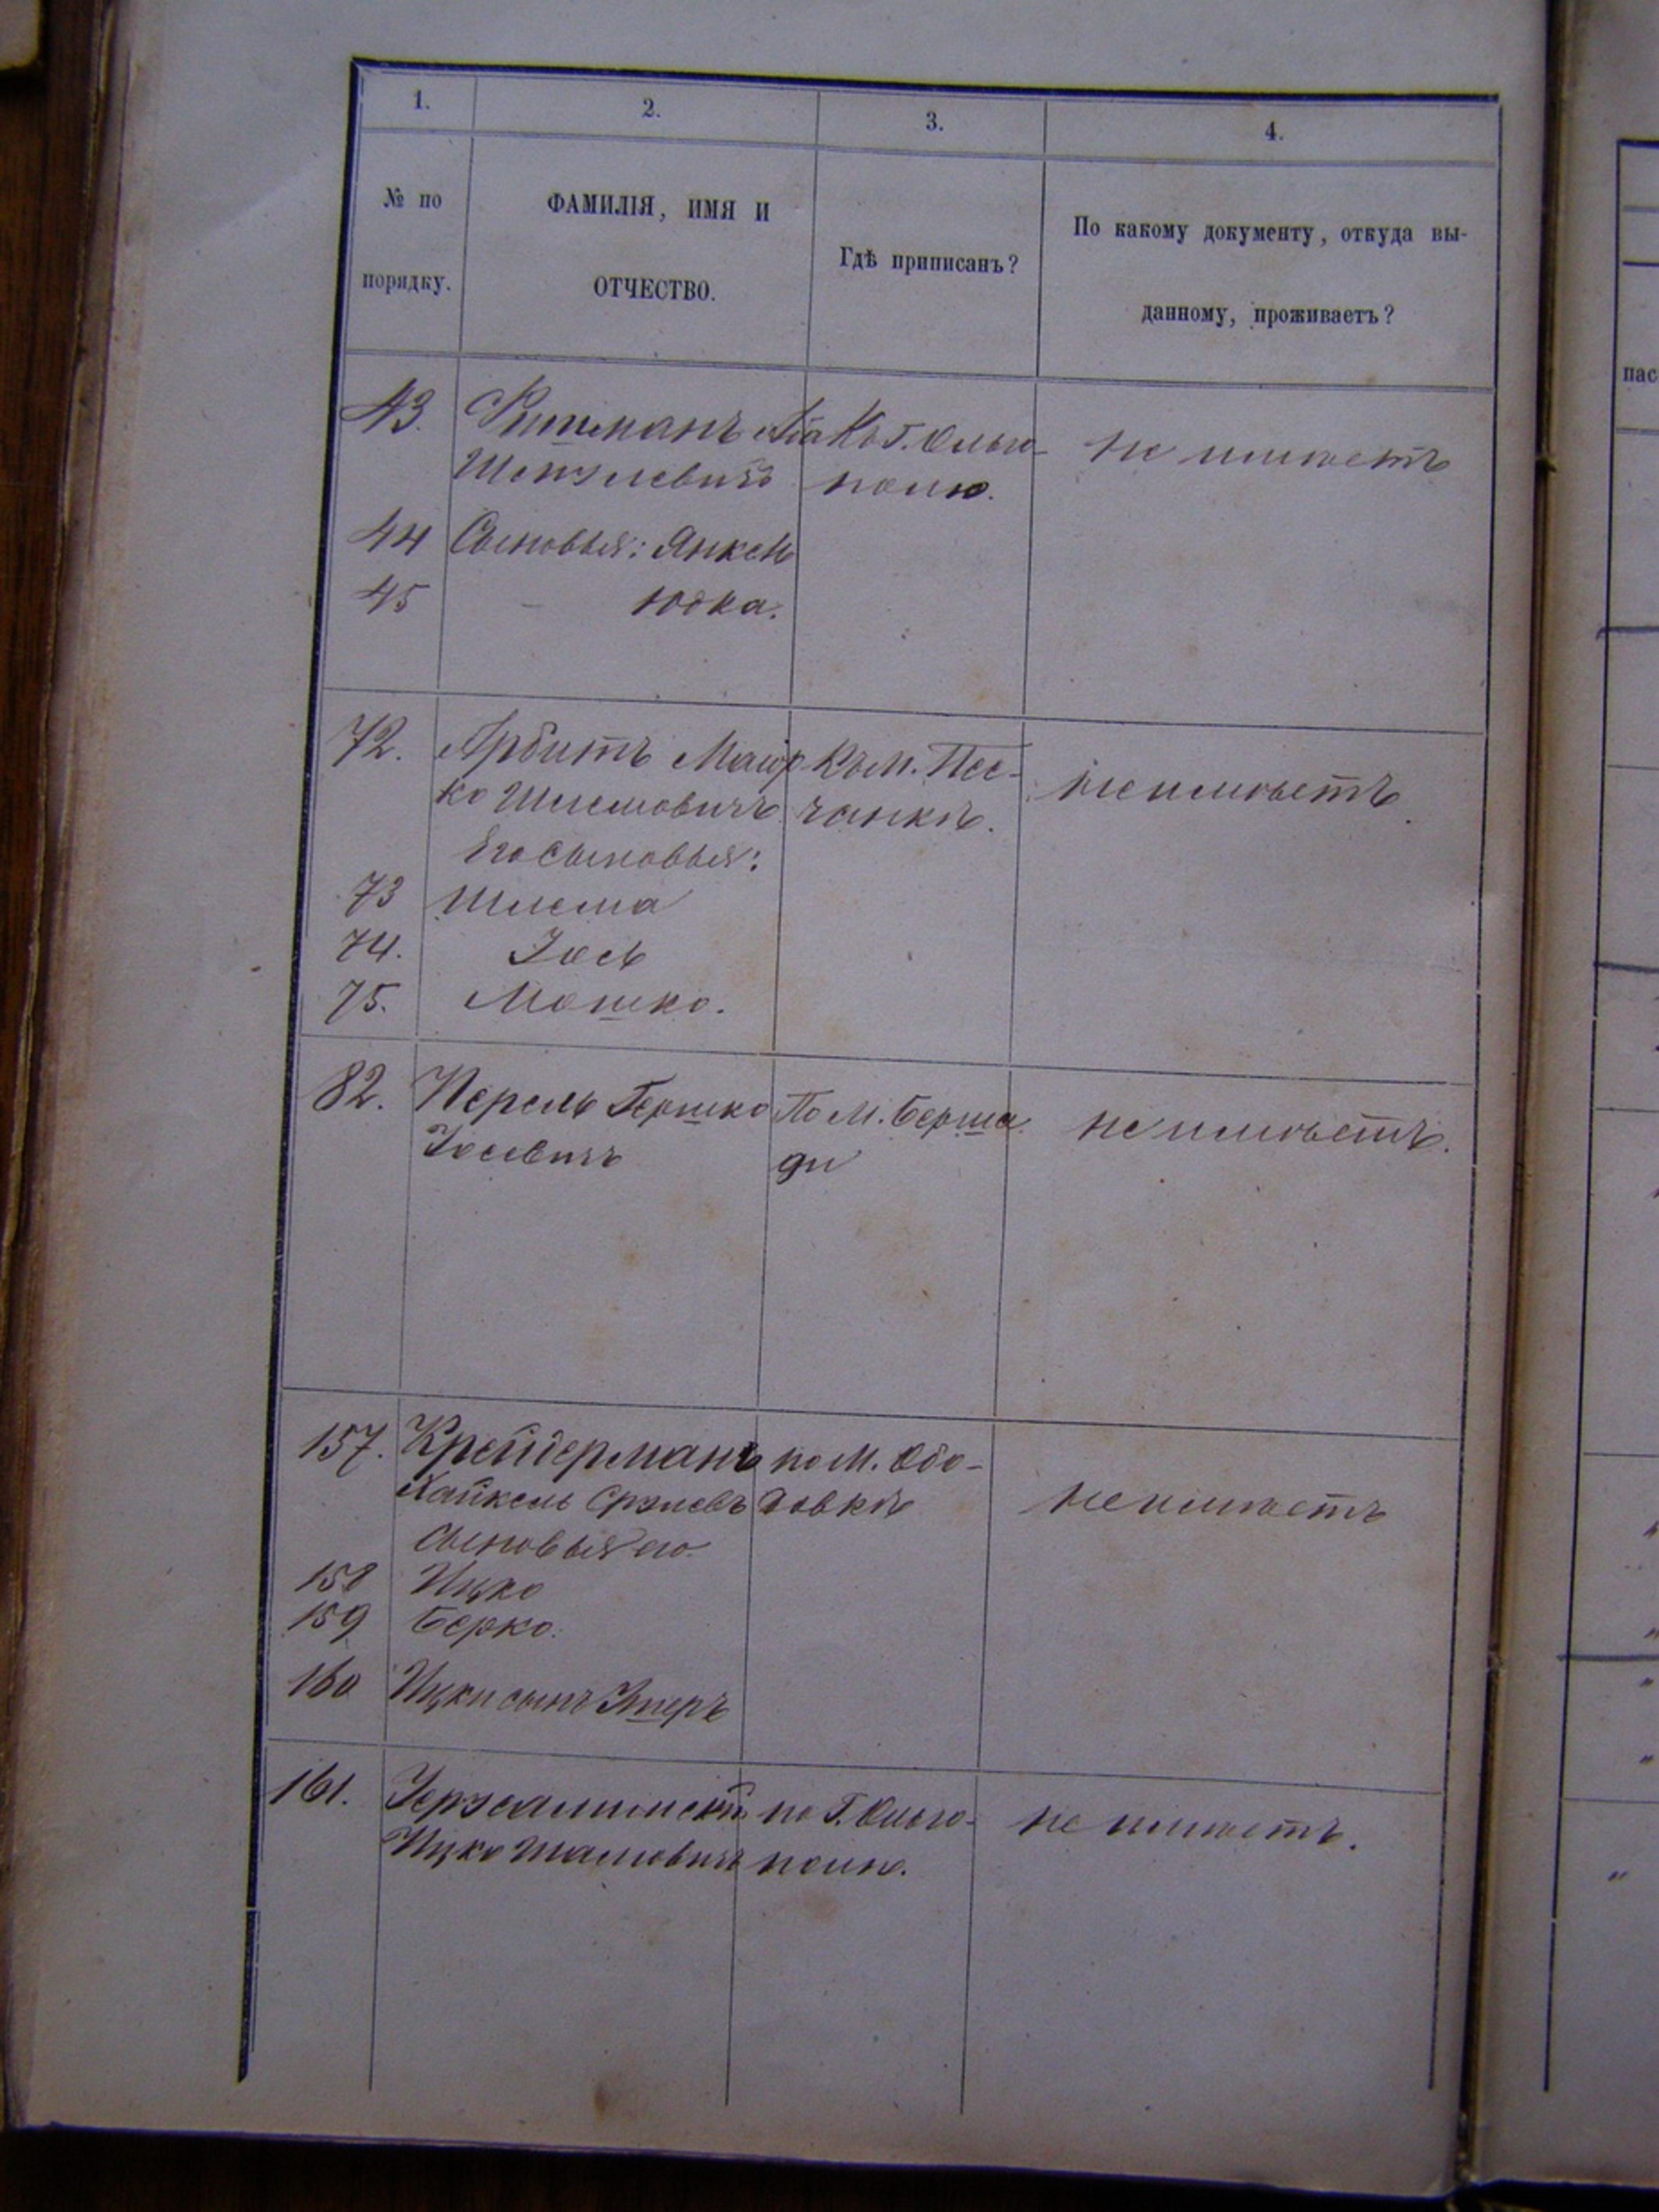 1. 2. 3. 4.
№ по порядку.
ФАМИЛІЯ, ИМЯ И ОТЧЕСТВО.
Гдѣ приписанъ?
По какому документу, откуда выданному, проживаетъ?
43. Къ Г. Ольго- не имѣетъ
полю.
44 Сыновья: Янкель
45 – Юдка.
72. Арбитъ Маіор- Къ м. Пес- не имѣетъ.
ко Шлемовичъ. чанкѣ.
Его сыновья:
73 Шлема
74. Іось
75. Мошко.
82. Перель Гершко По м. Берша не имѣетъ.
Іосевичъ ди
157. Крейдерманъ по м. Обо- не имѣетъ
Хайкель Срулевъ довкѣ
сыновья его
158 Ицко
159 Берко.
160 Ицки сынъ
161. по Г. Ольго- не имѣетъ.
Ицко Шамовичъ полю.
пас